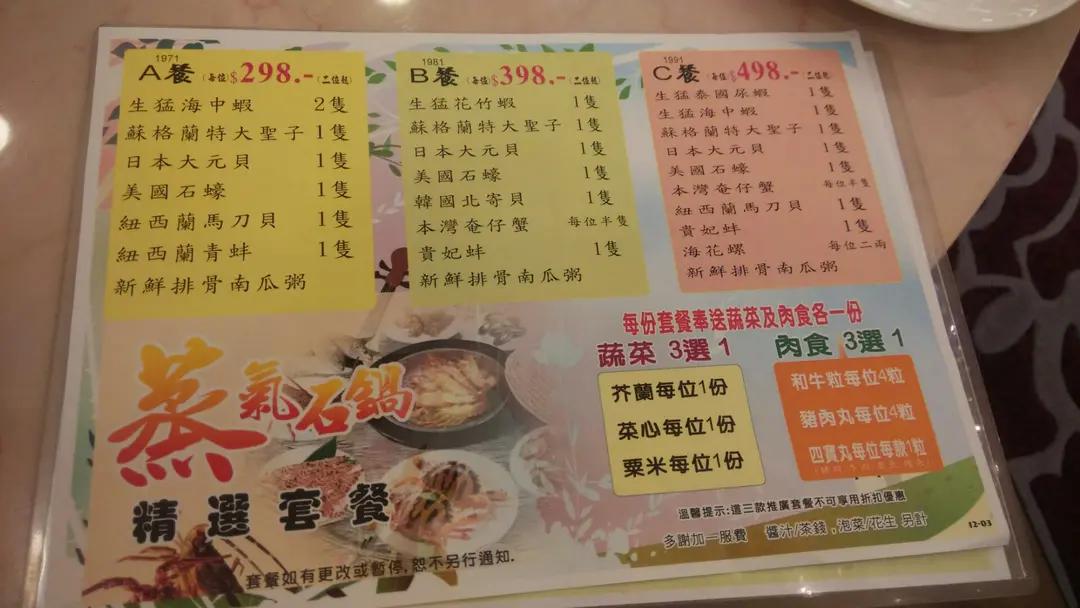 1971
A餐 (每位)$298.-(二位起)
生猛海中蝦 2隻
蘇格蘭特大聖子 1隻
日本大元貝 1隻
美國石蠔 1隻
紐西蘭馬刀貝 1隻
紐西蘭青蚌 1隻
新鮮排骨南瓜粥
1981
B餐 (每位)$398.-(二位起)
生猛花竹蝦 1隻
蘇格蘭特大聖子 1隻
日本大元貝 1隻
美國石蠔 1隻
韓國北寄貝 1隻
本灣奄仔蟹 每位半隻
貴妃蚌 1隻
新鮮排骨南瓜粥
1991
C餐 (每位)$498.-(二位起)
生猛泰國尿蝦 1隻
生猛海中蝦 1隻
蘇格蘭特大聖子 1隻
日本大元貝 1隻
美國石蠔 1隻
本灣奄仔蟹 每位半隻
紐西蘭馬刀貝 1隻
貴妃蚌 1隻
海花螺 每位二兩
新鮮排骨南瓜粥
蒸氣石鍋
精選套餐
套餐如有更改或暫停,恕不另行通知.
每份套餐奉送蔬菜及肉食各一份
蔬菜 3選1
芥蘭每位1份
菜心每位1份
粟米每位1份
肉食 3選1
和牛粒每位4粒
豬肉丸每位4粒
四寶丸每位每款1粒
溫馨提示:這三款推廣套餐不可享用折扣優惠
多謝加一服費 醬汁/茶錢,泡菜/花生 另計
12-03